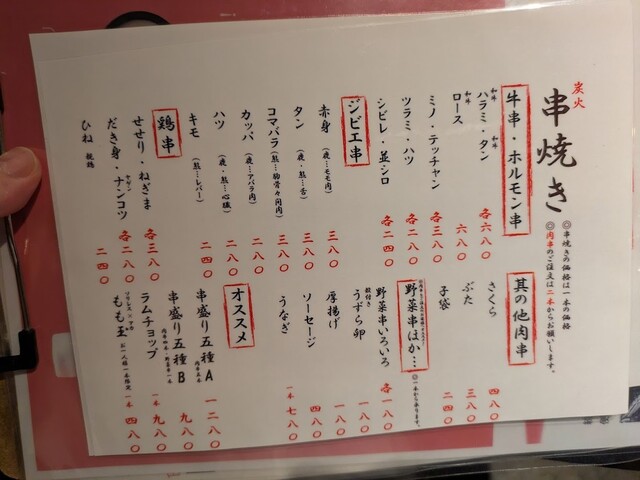 炭火
串焼き
◎串焼きの価格は一本の価格
◎肉串のご注文は二本からお願いします。
牛串・ホルモン串
和牛ハラミ・和牛タン 各六八〇
和牛ロース 六八〇
ミノ・テッチャン 各三八〇
ツラミ・ハツ 各二八〇
シビレ・並シロ 各二四〇
ジビエ串
赤身(鹿…モモ肉) 三八〇
タン(鹿・熊…舌) 三八〇
コマバラ(熊…肋骨々間肉) 三八〇
カッパ(鹿…アバラ肉) 二八〇
ハツ(鹿・熊…心臓) 二八〇
キモ(熊…レバー) 二四〇
鶏串
せせり・ねぎま 各三八〇
だき身・ヤゲンナンコツ 各二八〇
ひね 親鶏 二四〇
其の他肉串
さくら 四八〇
ぶた 三八〇
子袋 二四〇
野菜串ほか…
◎一本から承ります。
野菜串いろいろ 各一八〇
殻付きうずら卵 一八〇
厚揚げ 一八〇
ソーセージ 四八〇
うなぎ 一本 七八〇
オススメ
串盛り五種A 肉串五本 一二八〇
串盛り五種B 九八〇
ラムチョップ 一本 九八〇
もも玉 お一人様一本限定 一本 四八〇